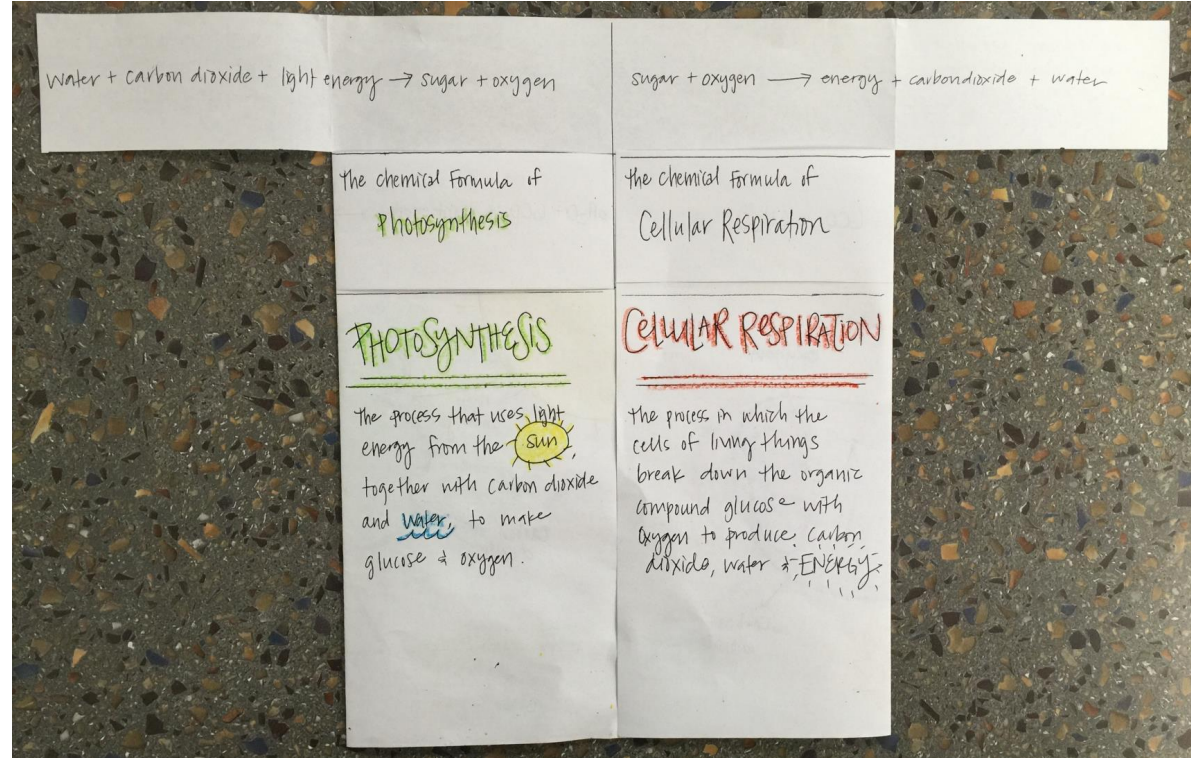 water + carbon dioxide + light energy → sugar + oxygen
sugar + oxygen → energy + carbondioxide + water
the chemical formula of
Photosynthesis
the chemical formula of
Cellular Respiration
PHOTOSYNTHESIS
the process that uses light
energy from the sun,
together with carbon dioxide
and water, to make
glucose & oxygen.
CELLULAR RESPIRATION
the process in which the
cells of living things
break down the organic
compound glucose with
oxygen to produce carbon
dioxide, water & ENERGY